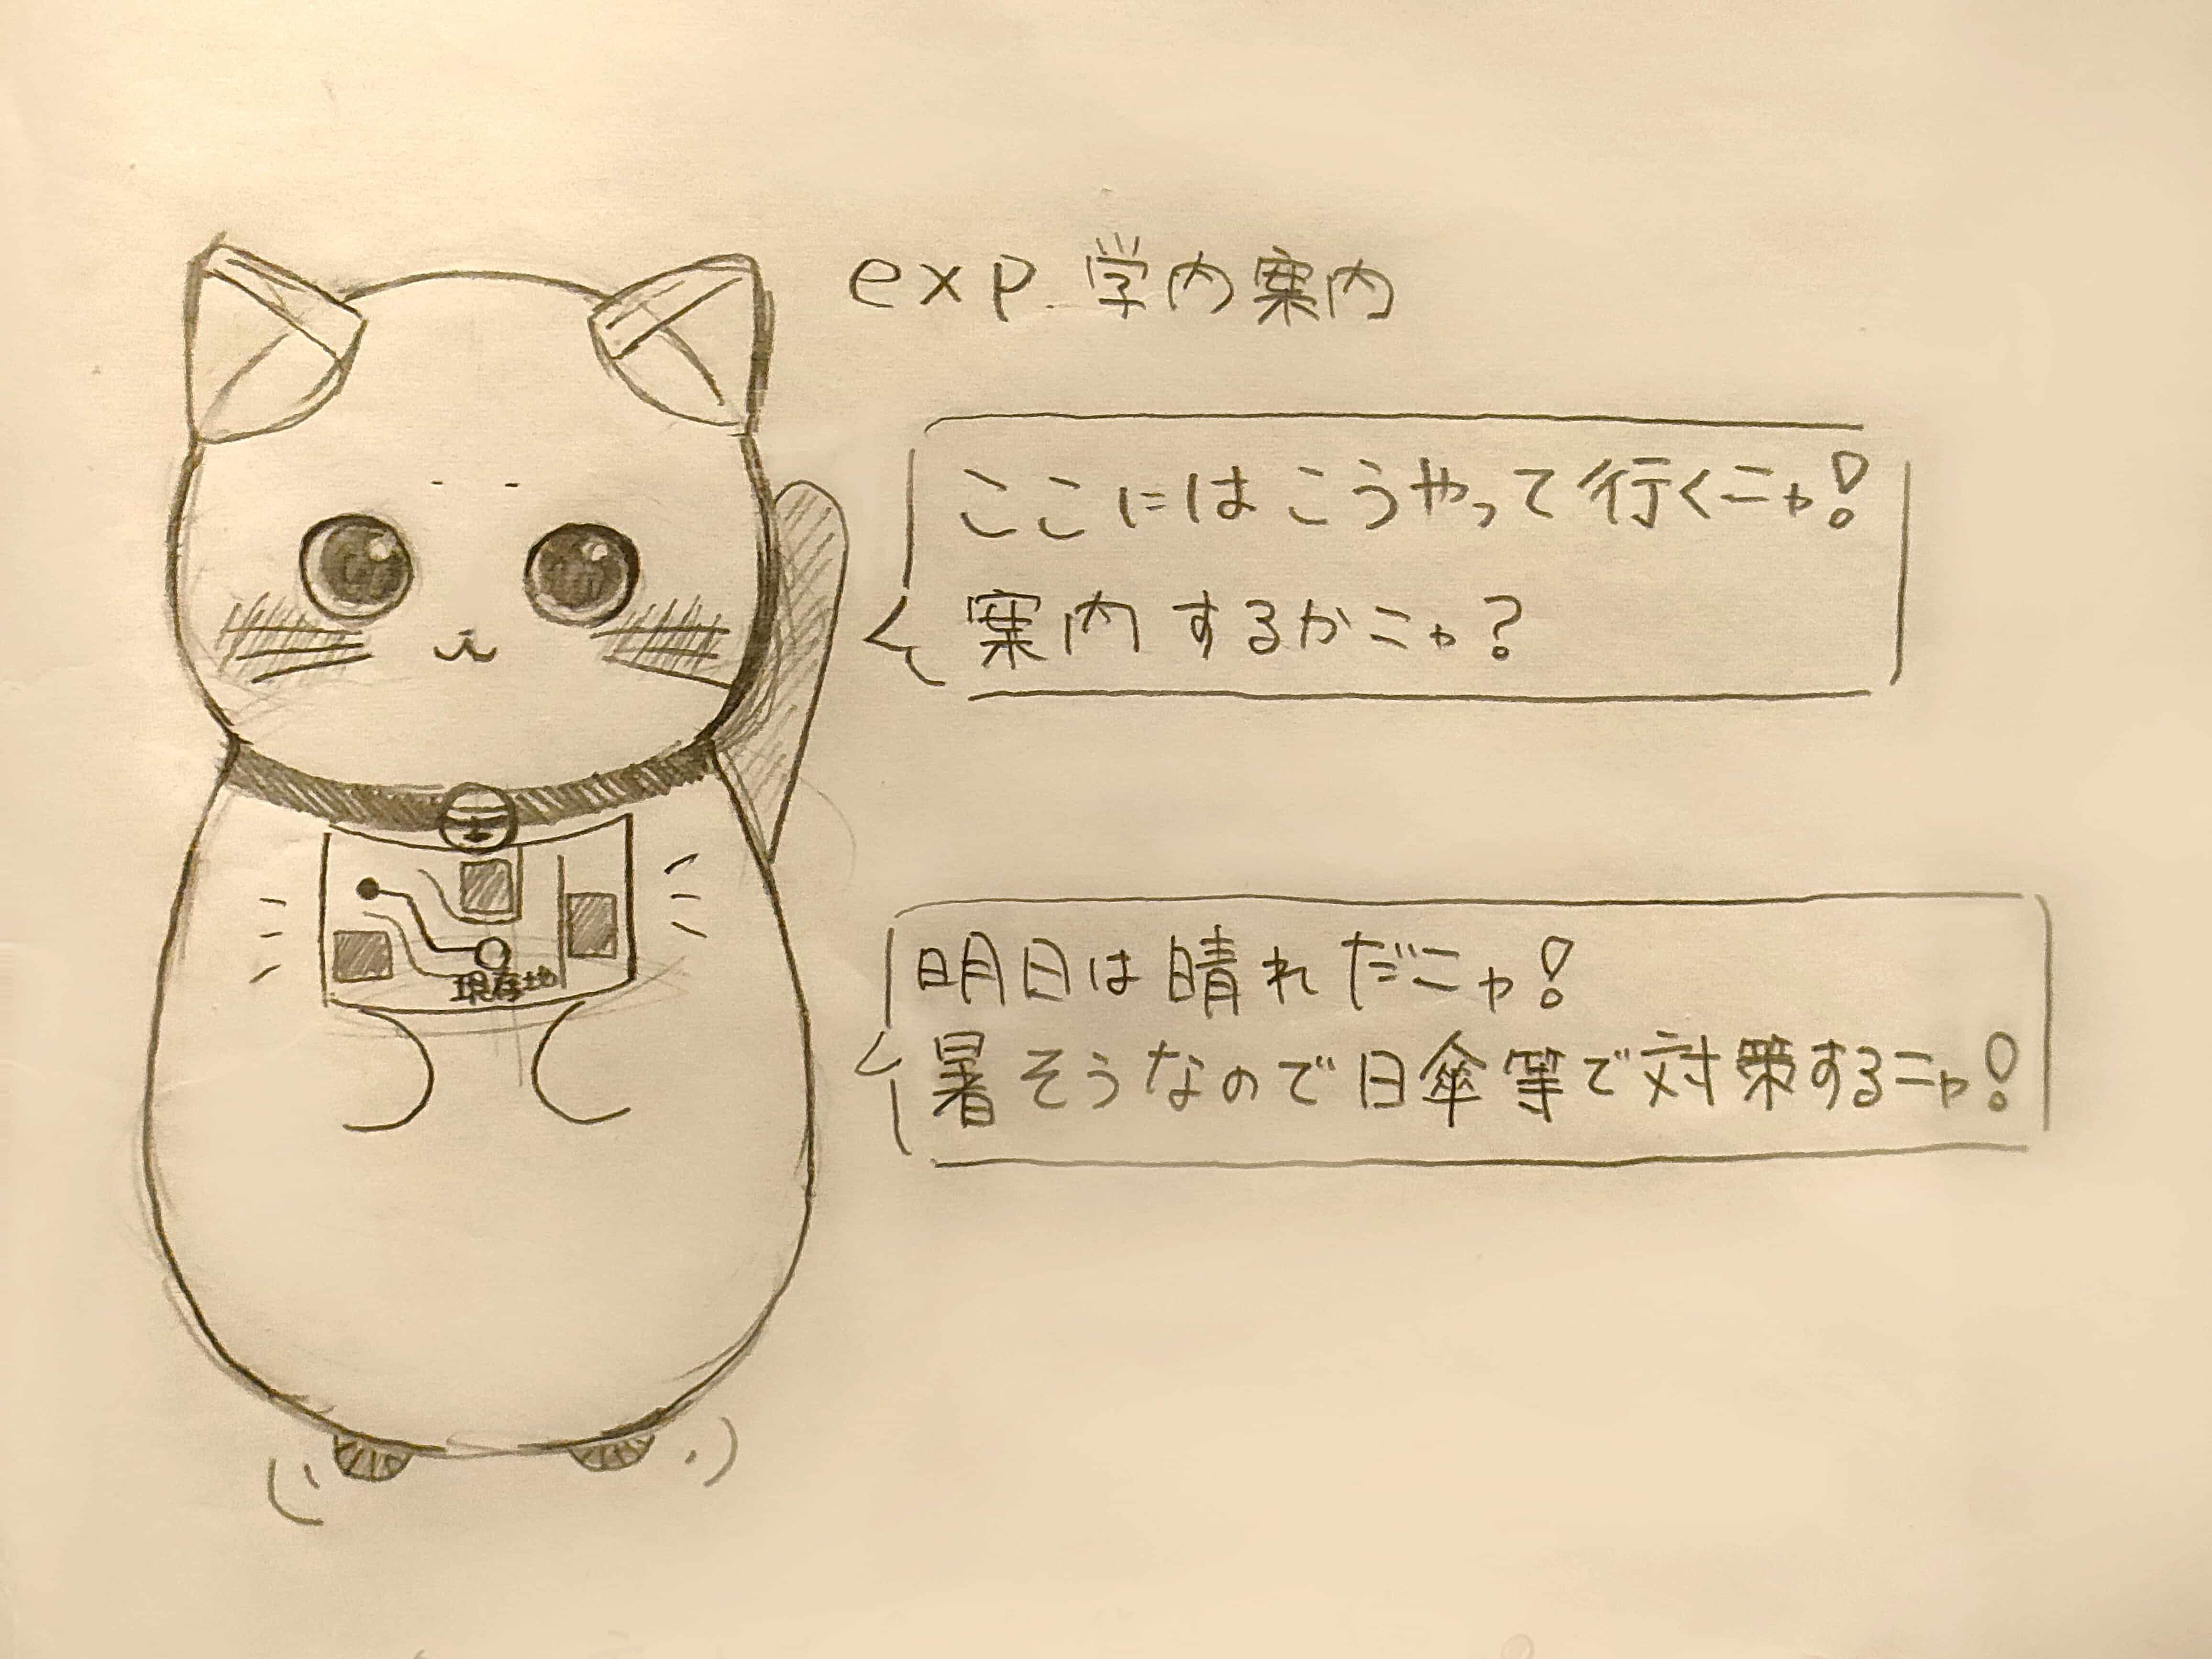 exp. 学内案内
ここにはこうやって行くニャ!
案内するかニャ?
現在地
明日は晴れだニャ!
暑そうなので日傘等で対策するニャ!